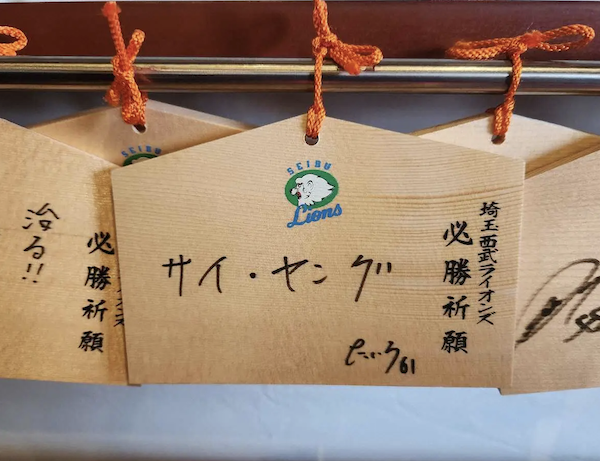 治る!!
オンズ
必勝祈願
SEIBU
Lions
埼玉西武ライオンズ
必勝祈願
サイ・ヤング
たいら 61